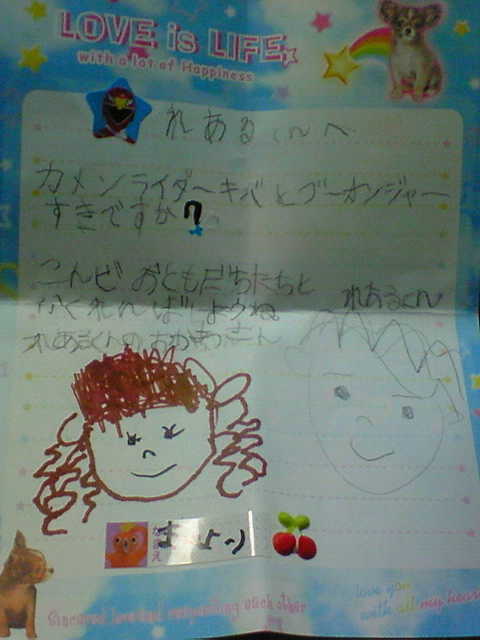 LOVE is LIFE
with a lot of Happiness
れあるくんへ
カメンライダーキバとゴーオンジャー
すきですか?
こんど おともだちたちと
かくれんぼしようね
れあるくん
れあるくんの
Sincered love and responding each other
love you
with all my heart